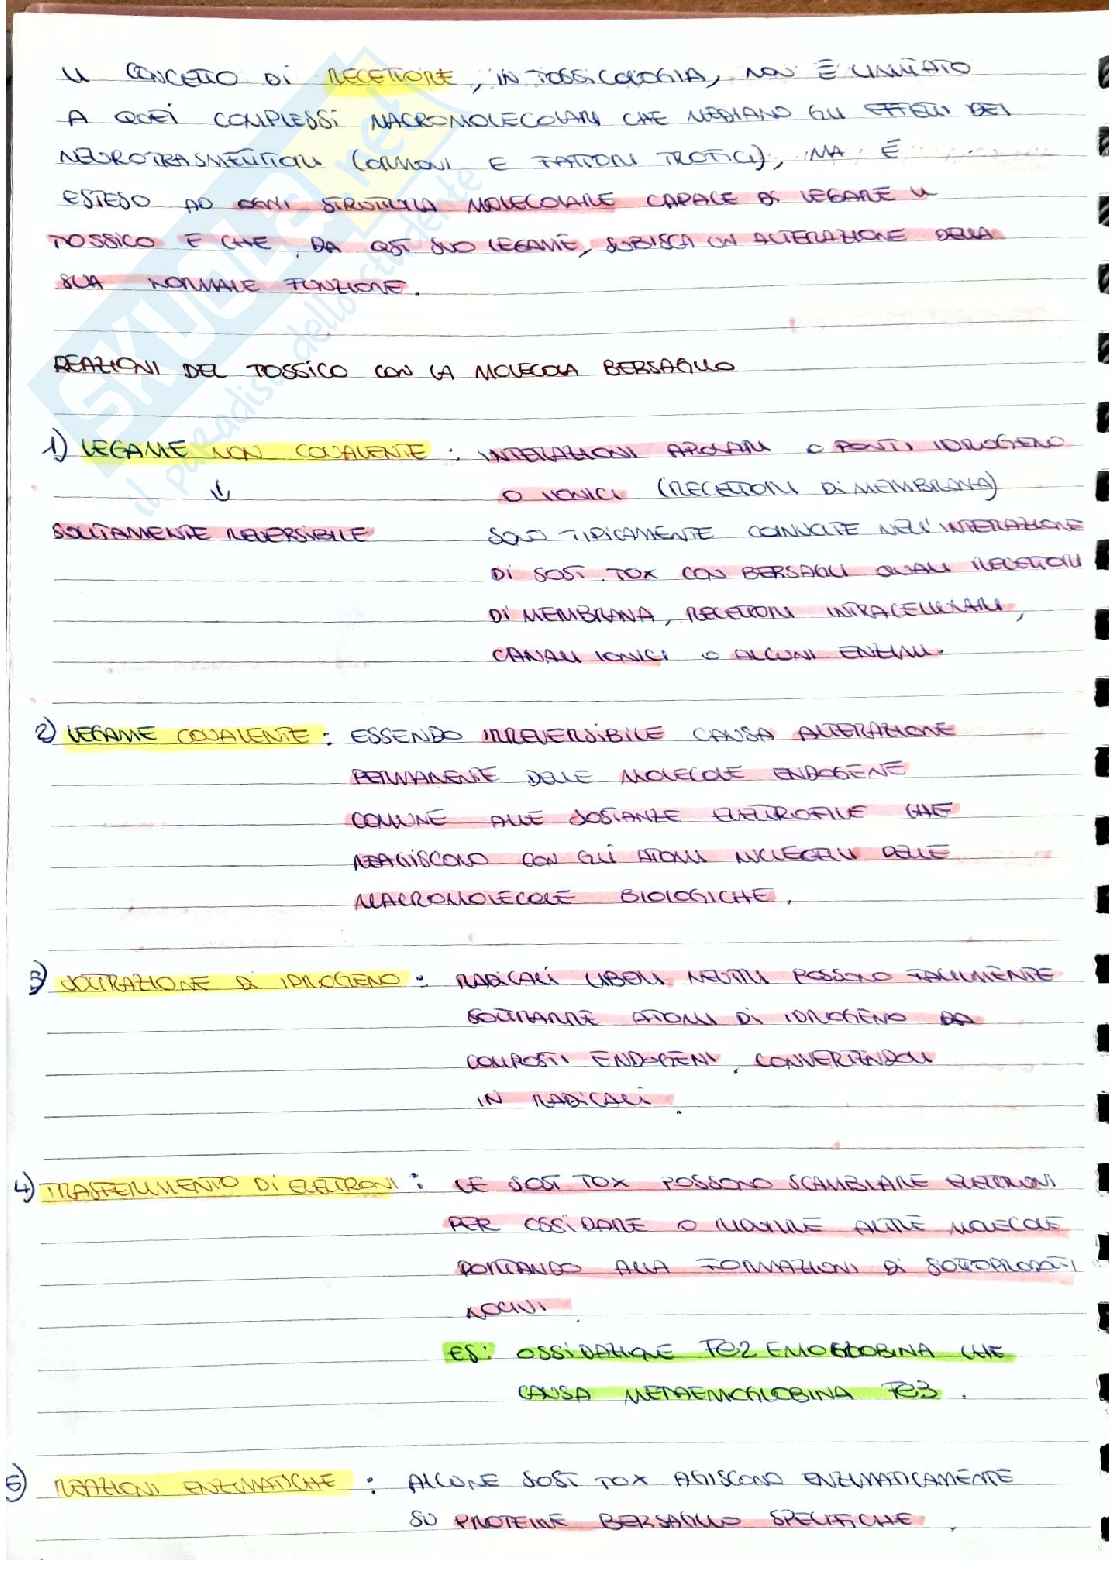 IL CONCETTO DI RECETTORE, IN TOSSICOLOGIA, NON È LIMITATO
A QUEI COMPLESSI MACROMOLECOLARI CHE MEDIANO GLI EFFETTI DEI
NEUROTRASMETTITORI (ORMONI E FATTORI TROFICI), MA È
ESTESO AD OGNI STRUTTURA MOLECOLARE CAPACE DI LEGARE IL
TOSSICO E CHE, DA QST SUO LEGAME, SUBISCA UN ALTERAZIONE DELLA
SUA NORMALE FUNZIONE.
REAZIONI DEL TOSSICO CON LA MOLECOLA BERSAGLIO
1) LEGAME NON COVALENTE : INTERAZIONI APOLARI O PONTI IDROGENO
↓ O IONICI (RECETTORI DI MEMBRANA)
SOLITAMENTE REVERSIBILE SONO TIPICAMENTE COINVOLTE NELL'INTERAZIONE
DI SOST. TOX CON BERSAGLI QUALI RECETTORI
DI MEMBRANA, RECETTORI INTRACELLULARI,
CANALI IONICI O ALCUNI ENZIMI.
2) LEGAME COVALENTE : ESSENDO IRREVERSIBILE CAUSA ALTERAZIONE
PERMANENTE DELLE MOLECOLE ENDOGENE
COMUNE ALLE SOSTANZE ELETTROFILE CHE
REAGISCONO CON GLI ATOMI NUCLEOFILI DELLE
MACROMOLECOLE BIOLOGICHE.
3) SOTTRAZIONE DI IDROGENO : RADICALI LIBERI NEUTRI POSSONO FACILMENTE
SOTTRARRE ATOMI DI IDROGENO DA
COMPOSTI ENDOGENI, CONVERTENDOLI
IN RADICALI.
4) TRASFERIMENTO DI ELETTRONI : LE SOST TOX POSSONO SCAMBIARE ELETTRONI
PER OSSIDARE O RIDURRE ALTRE MOLECOLE
PORTANDO ALLA FORMAZIONI DI SOTTOPRODOTTI
NOCIVI
ES: OSSIDAZIONE Fe2 EMOGLOBINA CHE
CAUSA METAEMOGLOBINA Fe3.
5) REAZIONI ENZIMATICHE : ALCUNE SOST TOX AGISCONO ENZIMATICAMENTE
SU PROTEINE BERSAGLIO SPECIFICHE.
SKUOLA.net
il paradiso dello studente